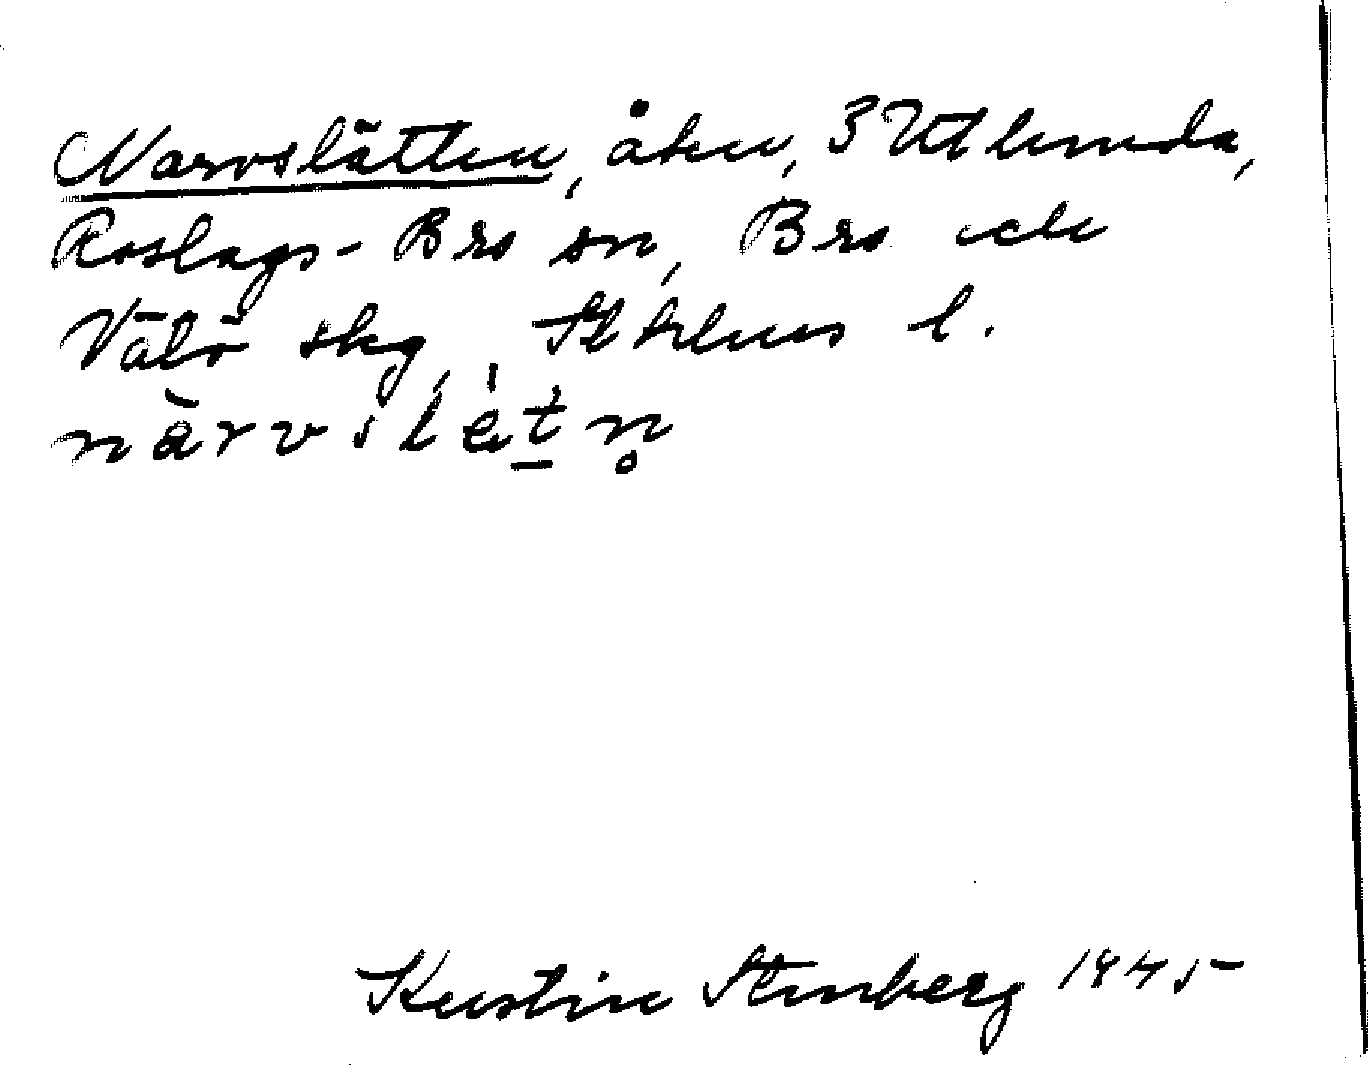 Narvslätten, åker, 3 Utlunda,
Roslags-Bro sn, Bro och
Vätö skg, Sthlms l.
nàrvslèṯn̥
Kerstin Stenberg 1945